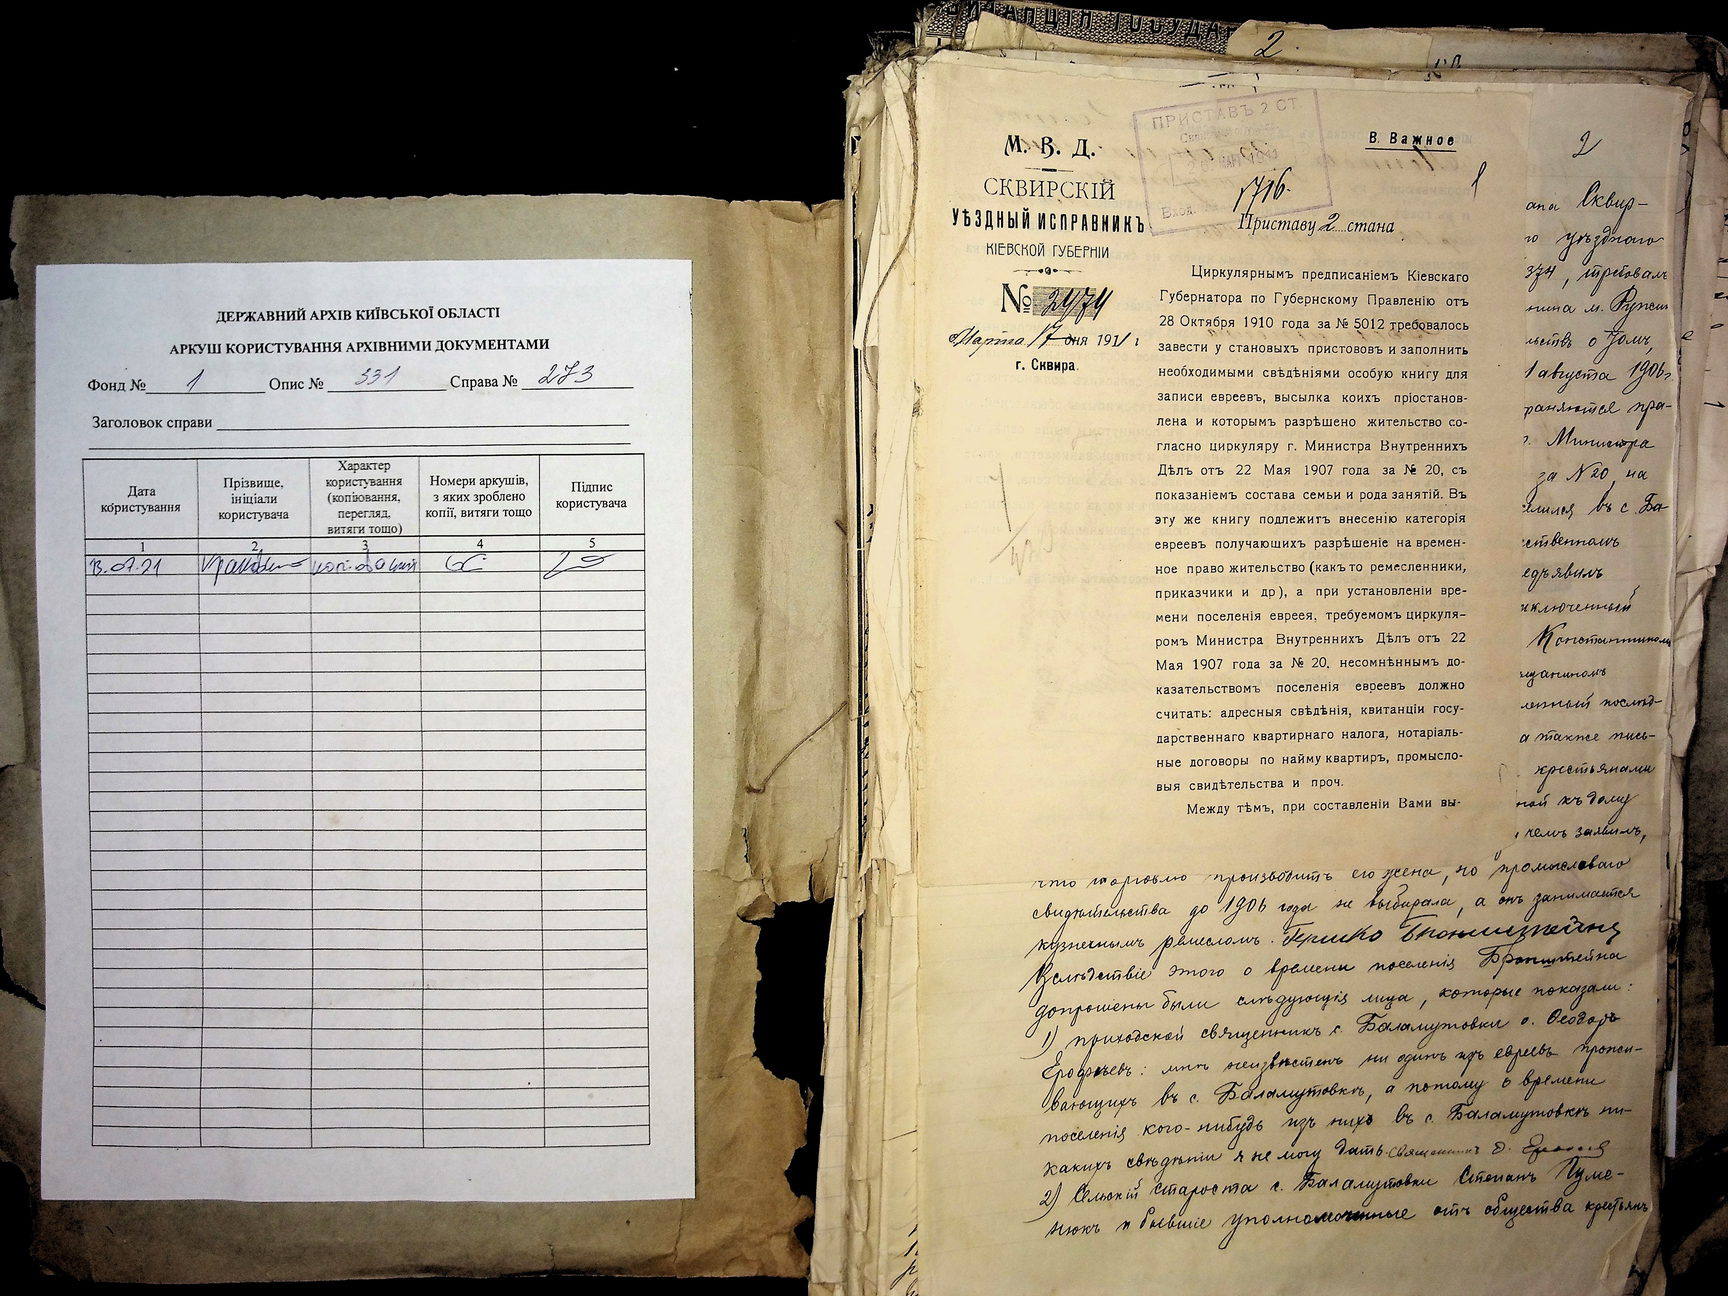 ДЕРЖАВНИЙ АРХІВ КИЇВСЬКОЇ ОБЛАСТІ
АРКУШ КОРИСТУВАННЯ АРХІВНИМИ ДОКУМЕНТАМИ
Фонд № 1 Опис № 331 Справа № 273
Заголовок справи
Дата користування
Прізвище, ініціали користувача
Характер користування (копіювання, перегляд, витяги тощо)
Номери аркушів, з яких зроблено копії, витяги тощо
Підпис користувача
1 2 3 4 5
13.07.21
2
ПРИСТАВЪ 2 СТ.
М. В. Д.
СКВИРСКІЙ
УѢЗДНЫЙ ИСПРАВНИКЪ
КІЕВСКОЙ ГУБЕРНІИ
№ 2474
Марта 17 дня 1911 г
г. Сквира.
В. Важное
1716.
1
Приставу 2 стана
Циркулярнымъ предписаніемъ Кіевскаго
Губернатора по Губернскому Правленію отъ
28 Октября 1910 года за № 5012 требовалось
завести у становыхъ пристововъ и заполнить
необходимыми свѣдѣніями особую книгу для
записи евреевъ, высылка коихъ пріостанов-
лена и которымъ разрѣшено жительство со-
гласно циркуляру г. Министра Внутреннихъ
Дѣлъ отъ 22 Мая 1907 года за № 20, съ
показаніемъ состава семьи и рода занятій. Въ
эту же книгу подлежитъ внесенію категорія
евреевъ получающихъ разрѣшеніе на времен-
ное право жительство (какъ то ремесленники,
приказчики и др), а при установленіи вре-
мени поселенія евреея, требуемомъ циркуля-
ромъ Министра Внутреннихъ Дѣлъ отъ 22
Мая 1907 года за № 20, несомнѣннымъ до-
казательствомъ поселенія евреевъ должно
считать: адресныя свѣдѣнія, квитанціи госу-
дарственнаго квартирнаго налога, нотаріаль-
ные договоры по найму квартиръ, промысло-
выя свидѣтельства и проч.
Между тѣмъ, при составленіи Вами вы-
2
ана Сквир-
го уѣзднаго
374, требовалъ
нина м. Ружин
льствъ о томъ,
1 августа 1906г.
раняются пра-
г. Министра
за №20, на
елился въ с. Ба-
ественномъ
едъявилъ
иключенный
Константиномъ
щаниномъ
а также пись-
крестьянами
ной къ дому
чемъ заявилъ,
что торговлю производитъ его жена, но промысловаго
свидѣтельства до 1906 года не выбирала, а онъ занимается
кузнечнымъ ремесломъ.
Вслѣдствіе этого о времени поселенія Бронштейна
допрошены были слѣдующія лица, которые показали:
1) приходской священникъ с. Баламутовки о. Ѳеодоръ
Ерофѣевъ: мнѣ неизвѣстенъ ни одинъ изъ евреевъ прожи-
вающихъ въ с. Баламутовкѣ, а потому о времени
поселенія кого-нибудь изъ нихъ въ с. Баламутовкѣ ни-
какихъ свѣдѣній я не могу дать. Священникъ Ѳ.
2) Сельскій староста с. Баламутовки Степанъ Гуме-
нюкъ и бывшіе уполномоченные отъ общества крестьянъ